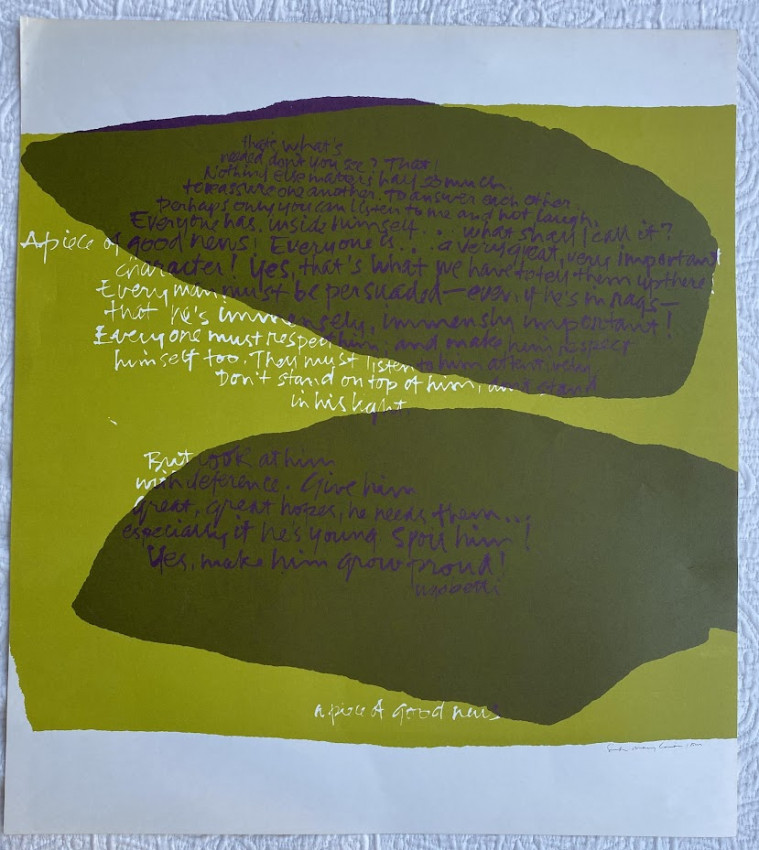 that's what's
needed don't you see? That!
Nothing else matters half so much.
to reassure one another. To answer each other.
Perhaps only you can listen to me and not laugh.
Everyone has, inside himself... what shall I call it?
A piece of good news! Everyone is... a very great, very important
character! Yes, that's what we have to tell them up there!
Every man must be persuaded—even if he's in rags—
that he's immensely, immensely important!
Everyone must respect him; and make him respect
himself too. They must listen to him attentively.
Don't stand on top of him, don't stand
in his light.
But look at him
with deference. Give him
great, great hopes, he needs them...
especially if he's young Spoil him!
Yes, make him grow proud!
ugo betti
a piece of good news
Sister Mary Corita IHM